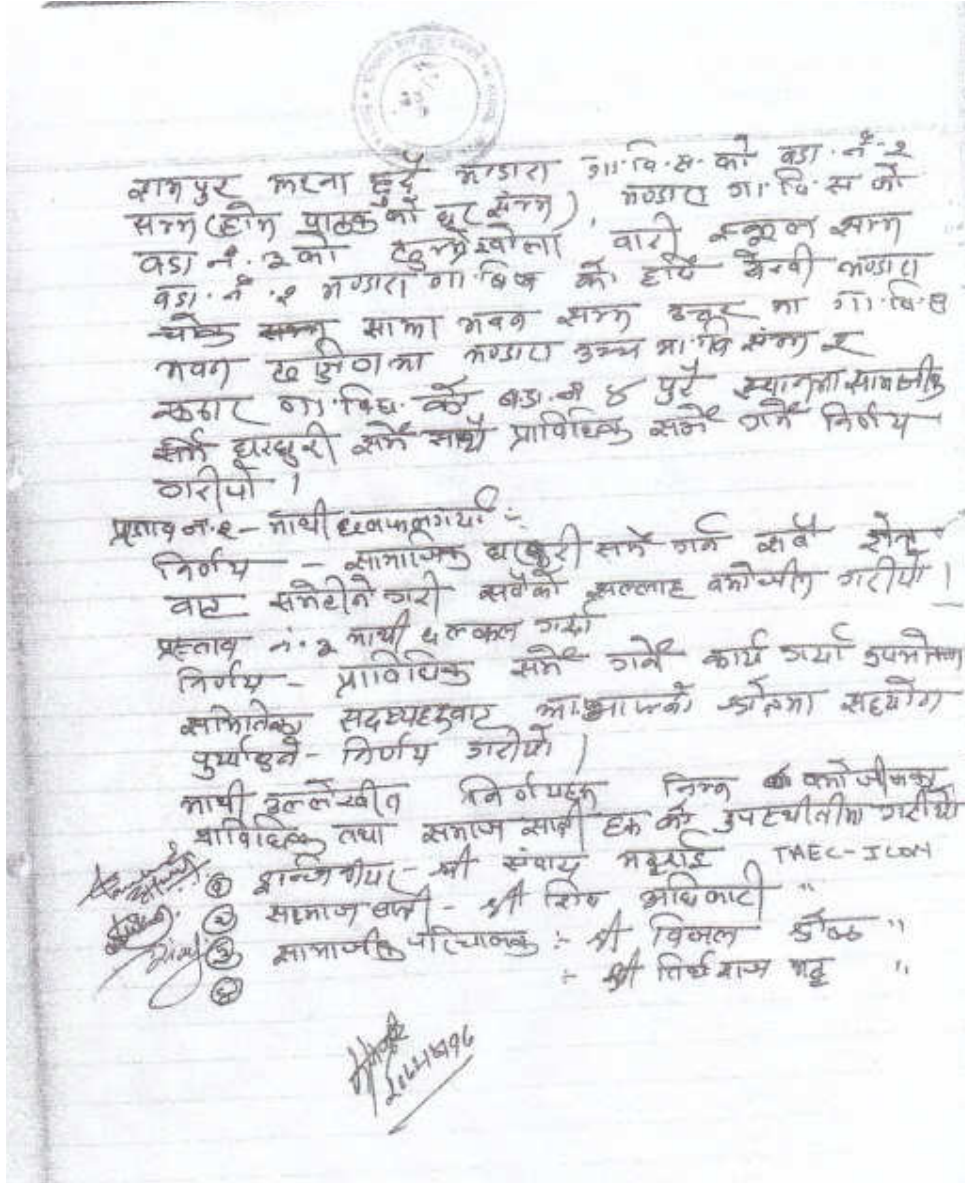 रामपुर झरना हुदै भण्डारा गा.वि.स. को वडा. नं. २
सम्म (होम पाठक को घर सम्म), भण्डारा गा.वि.स को
वडा नं. ३ को खोला वारी स्कूल सम्म
वडा. नं. २ भण्डारा गा.बिस को भण्डारा
साझा भवन सम्म उत्तर मा गा.बि.स
भवन दक्षिणमा भण्डारा उच्च मा.वि संम्म र
गा.बिस. को वडा. नं ४ पुरै स्थानमा सामाजीक
सर्भे घरधुरी सर्भे प्राविधिक सर्भे गर्ने निर्णय
गरीयो ।
प्रस्ताव नं. २ - माथी छलफल गर्या :-
निर्णय - सामाजिक घरधुरी सर्भे गर्न सबै क्षेत्र
वाट समेटीने गरी सवैको सल्लाह वमोजीम गरीयो ।
प्रस्ताव नं. ३ माथी छलफल गर्या
निर्णय - प्राविधिक सर्भे गर्ने कार्य गर्या उपभोक्ता
समितिका सदस्यहरुवाट आ-आफ्नो क्षेत्रमा सहयोग
पुर्याउने - निर्णय गरीयो ।
माथी उल्लेखीत निर्णयहरु निम्न वमोजीमका
प्राविधिक तथा समाज सास्त्री हरु को उपस्थीतीमा गरीयो
① इन्जिनीयर - श्री भट्टराई TAEC-ICON
② समाज शास्त्री - श्री शिव अधिकारी "
③ सामाजीक परिचालक :- श्री विमल "
④ :- श्री तिर्थराज भट्ट "